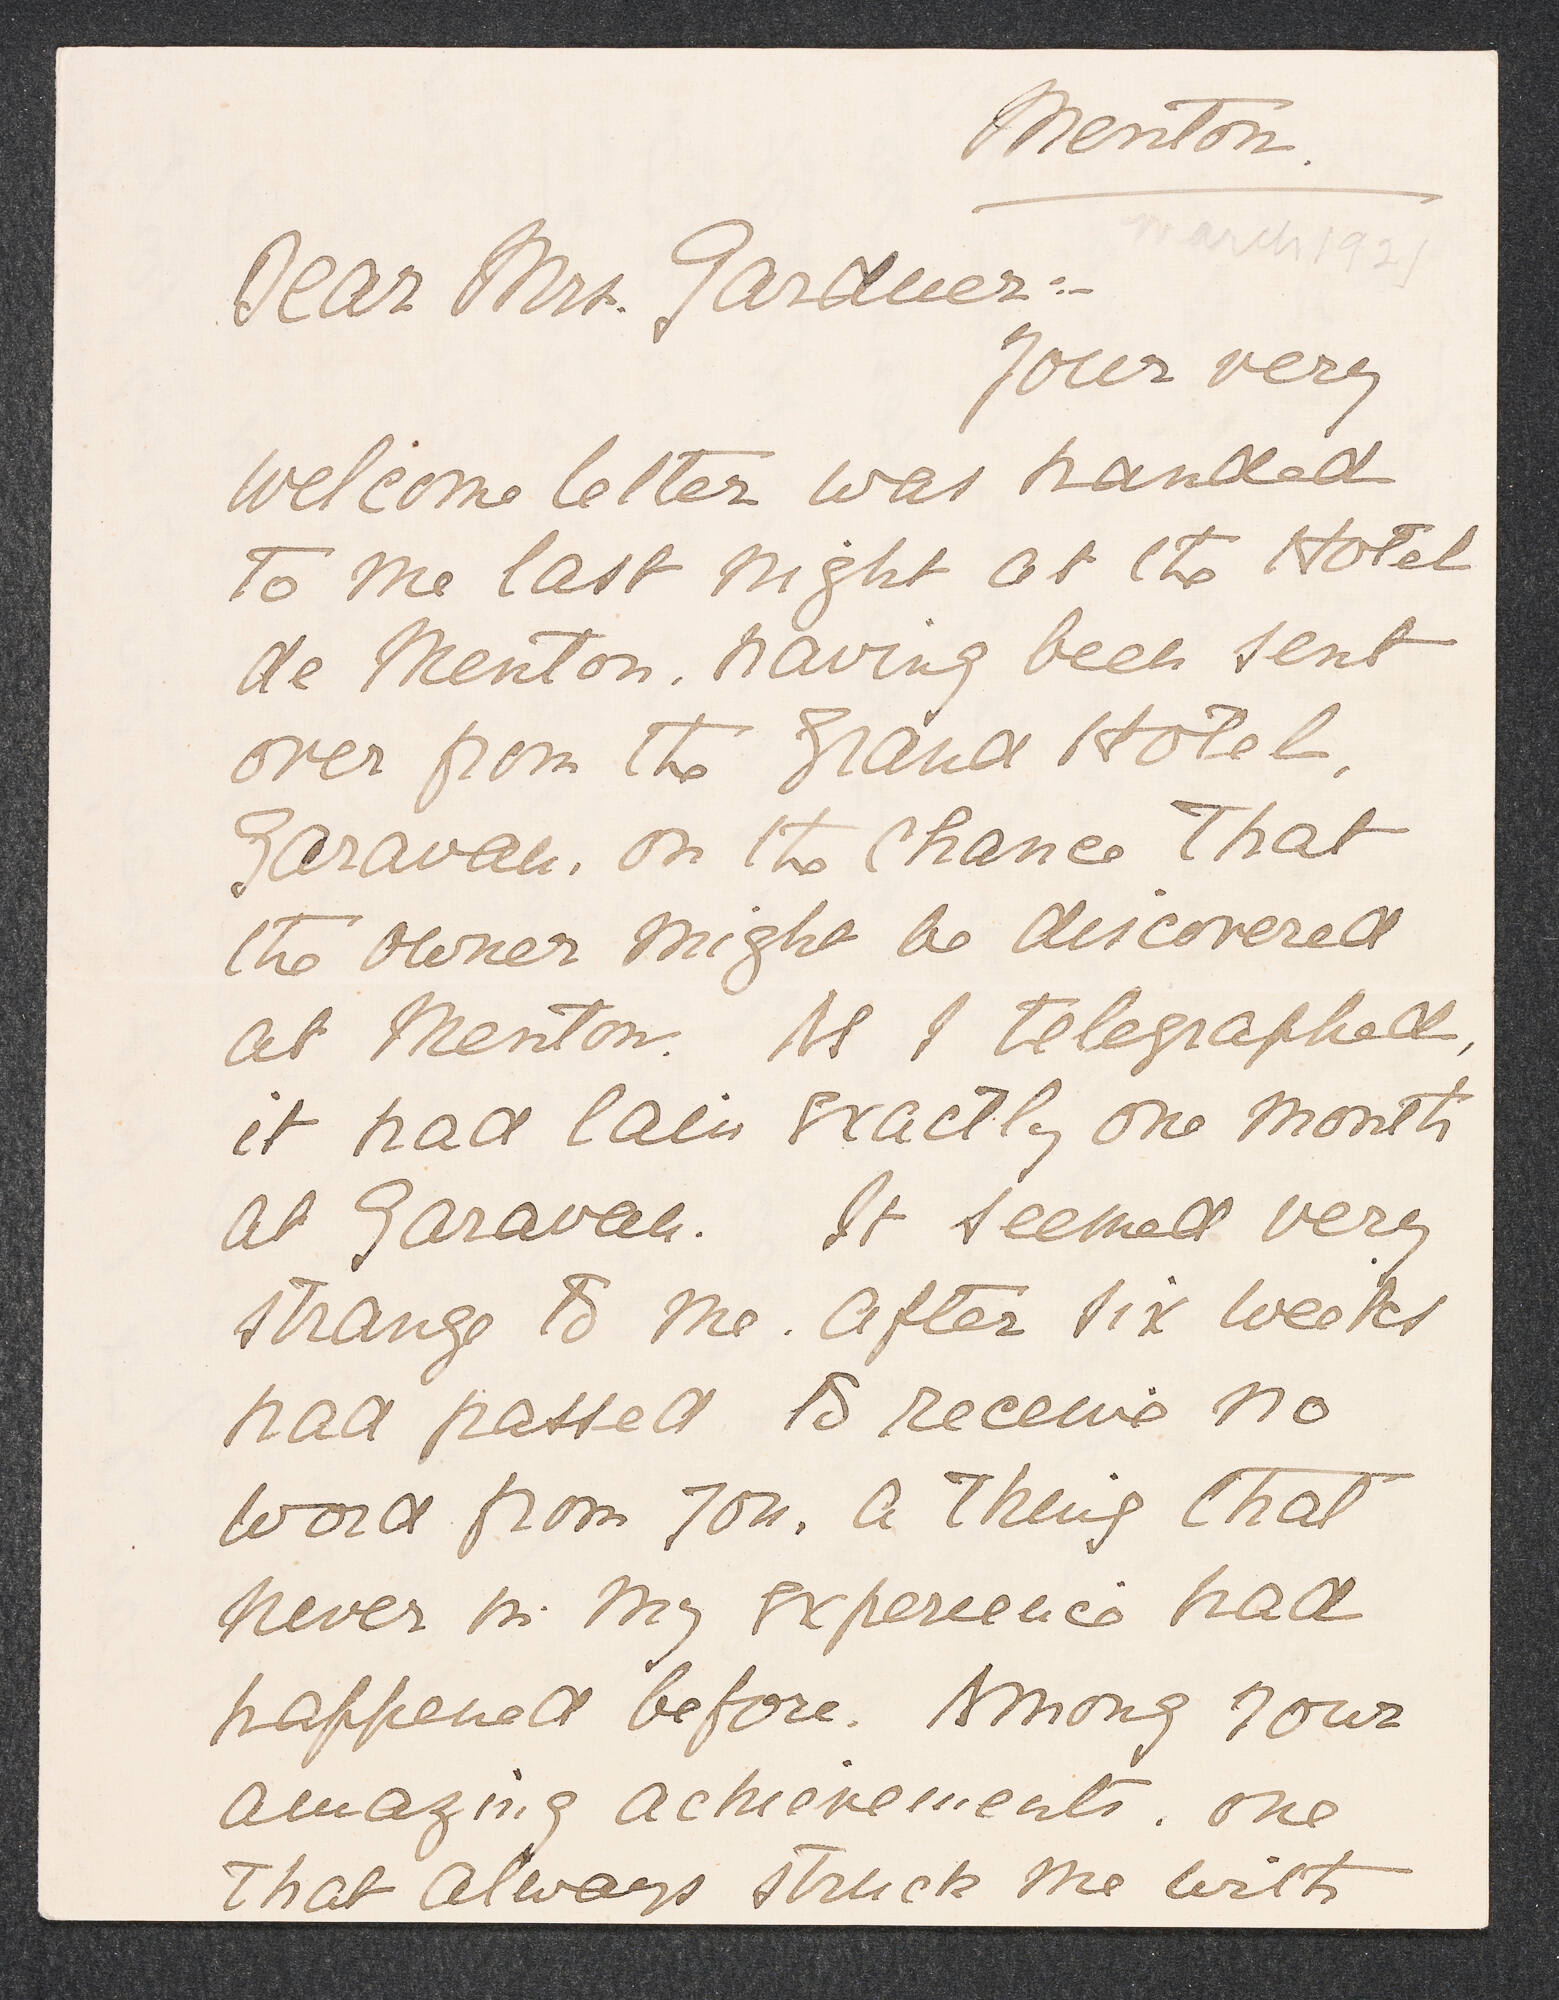 Menton.
March 1921
Dear Mrs. Gardner:-
Your very
welcome letter was handed
to me last night at the Hotel
de Menton, having been sent
over from the Grand Hotel,
Garavan, on the chance that
the owner might be discovered
at Menton. As I telegraphed,
it had lain exactly one month
at Garavan. It seemed very
strange to me, after six weeks
had passed to receive no
word from you, a thing that
never in my experience had
happened before. Among your
amazing achievements, one
that always struck me with